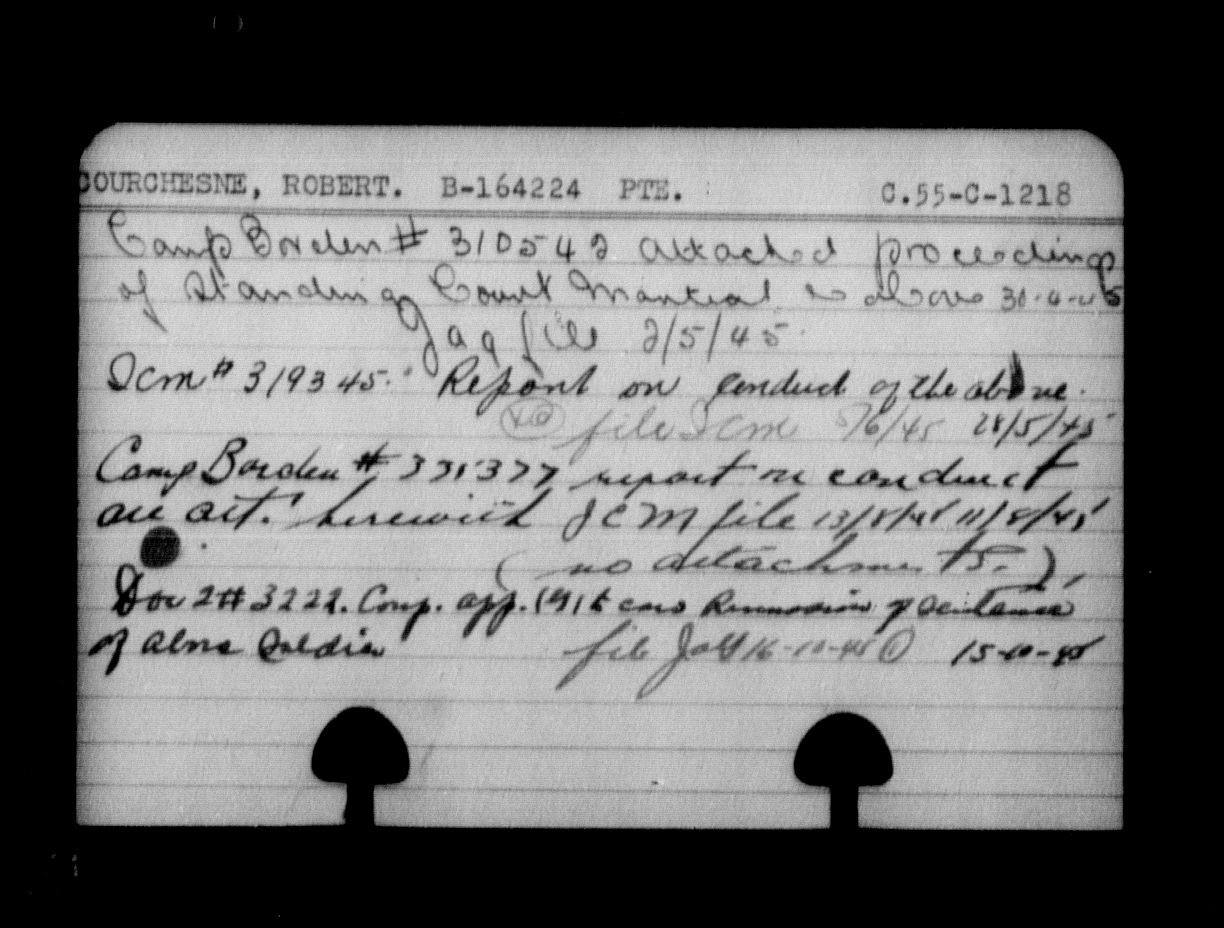 COURCHESNE, ROBERT. B-164224 PTE. C.55-C-1218
Camp Borden # 310542 attached proceedings
of Standing Court Martial re above 30-4-45
Jag file 2/5/45
# 319345. Report on conduct of the above.
file 5/6/45 28/5/45
Camp Borden # 335377 report on conduct
herewith file 13/8/45 11/8/45
(no attachments.)
Doc 2 # 3222. Comp. app. Remission of Sentence
of above Soldier file Jag 16-10-45 15-10-45